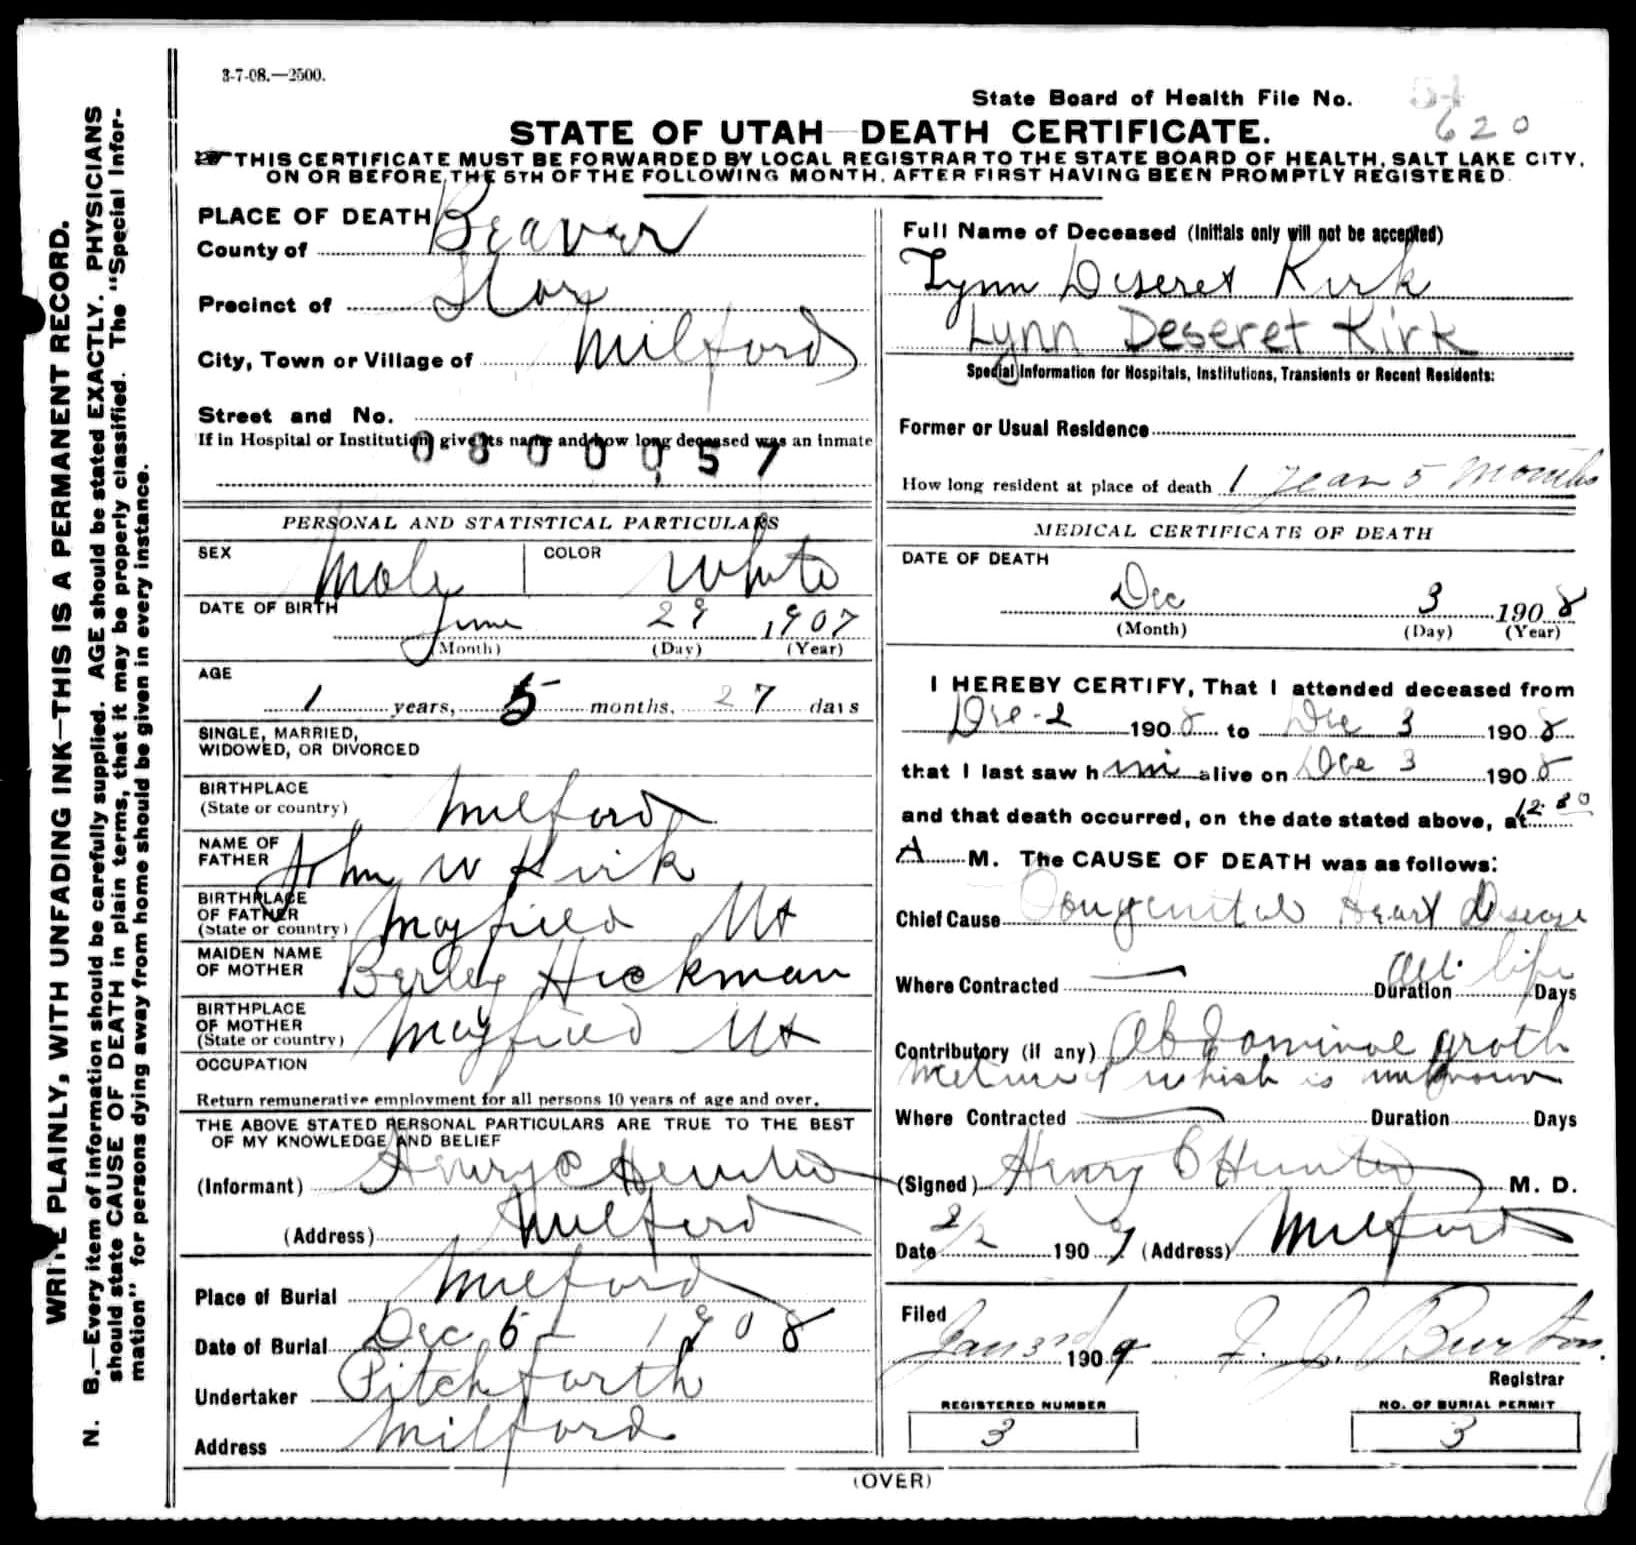 3-7-08.—2500.
State Board of Health File No. 54
620
STATE OF UTAH—DEATH CERTIFICATE.
THIS CERTIFICATE MUST BE FORWARDED BY LOCAL REGISTRAR TO THE STATE BOARD OF HEALTH, SALT LAKE CITY,
ON OR BEFORE THE 5TH OF THE FOLLOWING MONTH, AFTER FIRST HAVING BEEN PROMPTLY REGISTERED.
WRITE PLAINLY, WITH UNFADING INK—THIS IS A PERMANENT RECORD.
N. B.—Every item of information should be carefully supplied. AGE should be stated EXACTLY. PHYSICIANS
should state CAUSE OF DEATH in plain terms, that it may be properly classified. The "Special Infor-
mation" for persons dying away from home should be given in every instance.
PLACE OF DEATH
County of Beaver
Precinct of Star
City, Town or Village of Milford
Street and No.
If in Hospital or Institution, give its name and how long deceased was an inmate
0800057
PERSONAL AND STATISTICAL PARTICULARS
SEX Male COLOR White
DATE OF BIRTH
June 29 1907
(Month) (Day) (Year)
AGE
1 years, 5 months, 27 days
SINGLE, MARRIED,
WIDOWED, OR DIVORCED
BIRTHPLACE
(State or country) Milford
NAME OF
FATHER John W Kirk
BIRTHPLACE
OF FATHER
(State or country) Mayfield Ut
MAIDEN NAME
OF MOTHER Hickman
BIRTHPLACE
OF MOTHER
(State or country) Mayfield Ut
OCCUPATION
Return remunerative employment for all persons 10 years of age and over.
THE ABOVE STATED PERSONAL PARTICULARS ARE TRUE TO THE BEST
OF MY KNOWLEDGE AND BELIEF
(Informant) Henry C Hunter
(Address) Milford
Place of Burial Milford
Date of Burial Dec 5 1908
Undertaker Pitchforth
Address Milford
Full Name of Deceased (Initials only will not be accepted)
Lynn Deseret Kirk
Lynn Deseret Kirk
Special Information for Hospitals, Institutions, Transients or Recent Residents:
Former or Usual Residence
How long resident at place of death 1 year 5 months
MEDICAL CERTIFICATE OF DEATH
DATE OF DEATH
Dec 3 1908
(Month) (Day) (Year)
I HEREBY CERTIFY, That I attended deceased from
Dec 2 1908 to Dec 3 1908
that I last saw him alive on Dec 3 1908
and that death occurred, on the date stated above, at
A M. The CAUSE OF DEATH was as follows:
Chief Cause Congenital Heart Disease
Where Contracted — Duration All life Days
Contributory (if any) Abdominal groth
which is unknown
Where Contracted — Duration Days
(Signed) Henry C Hunter M. D.
Date 2/2 1909 (Address) Milford
Filed
Jan 3 1909 F. J. Burton.
Registrar
REGISTERED NUMBER
3
NO. OF BURIAL PERMIT
3
(OVER)